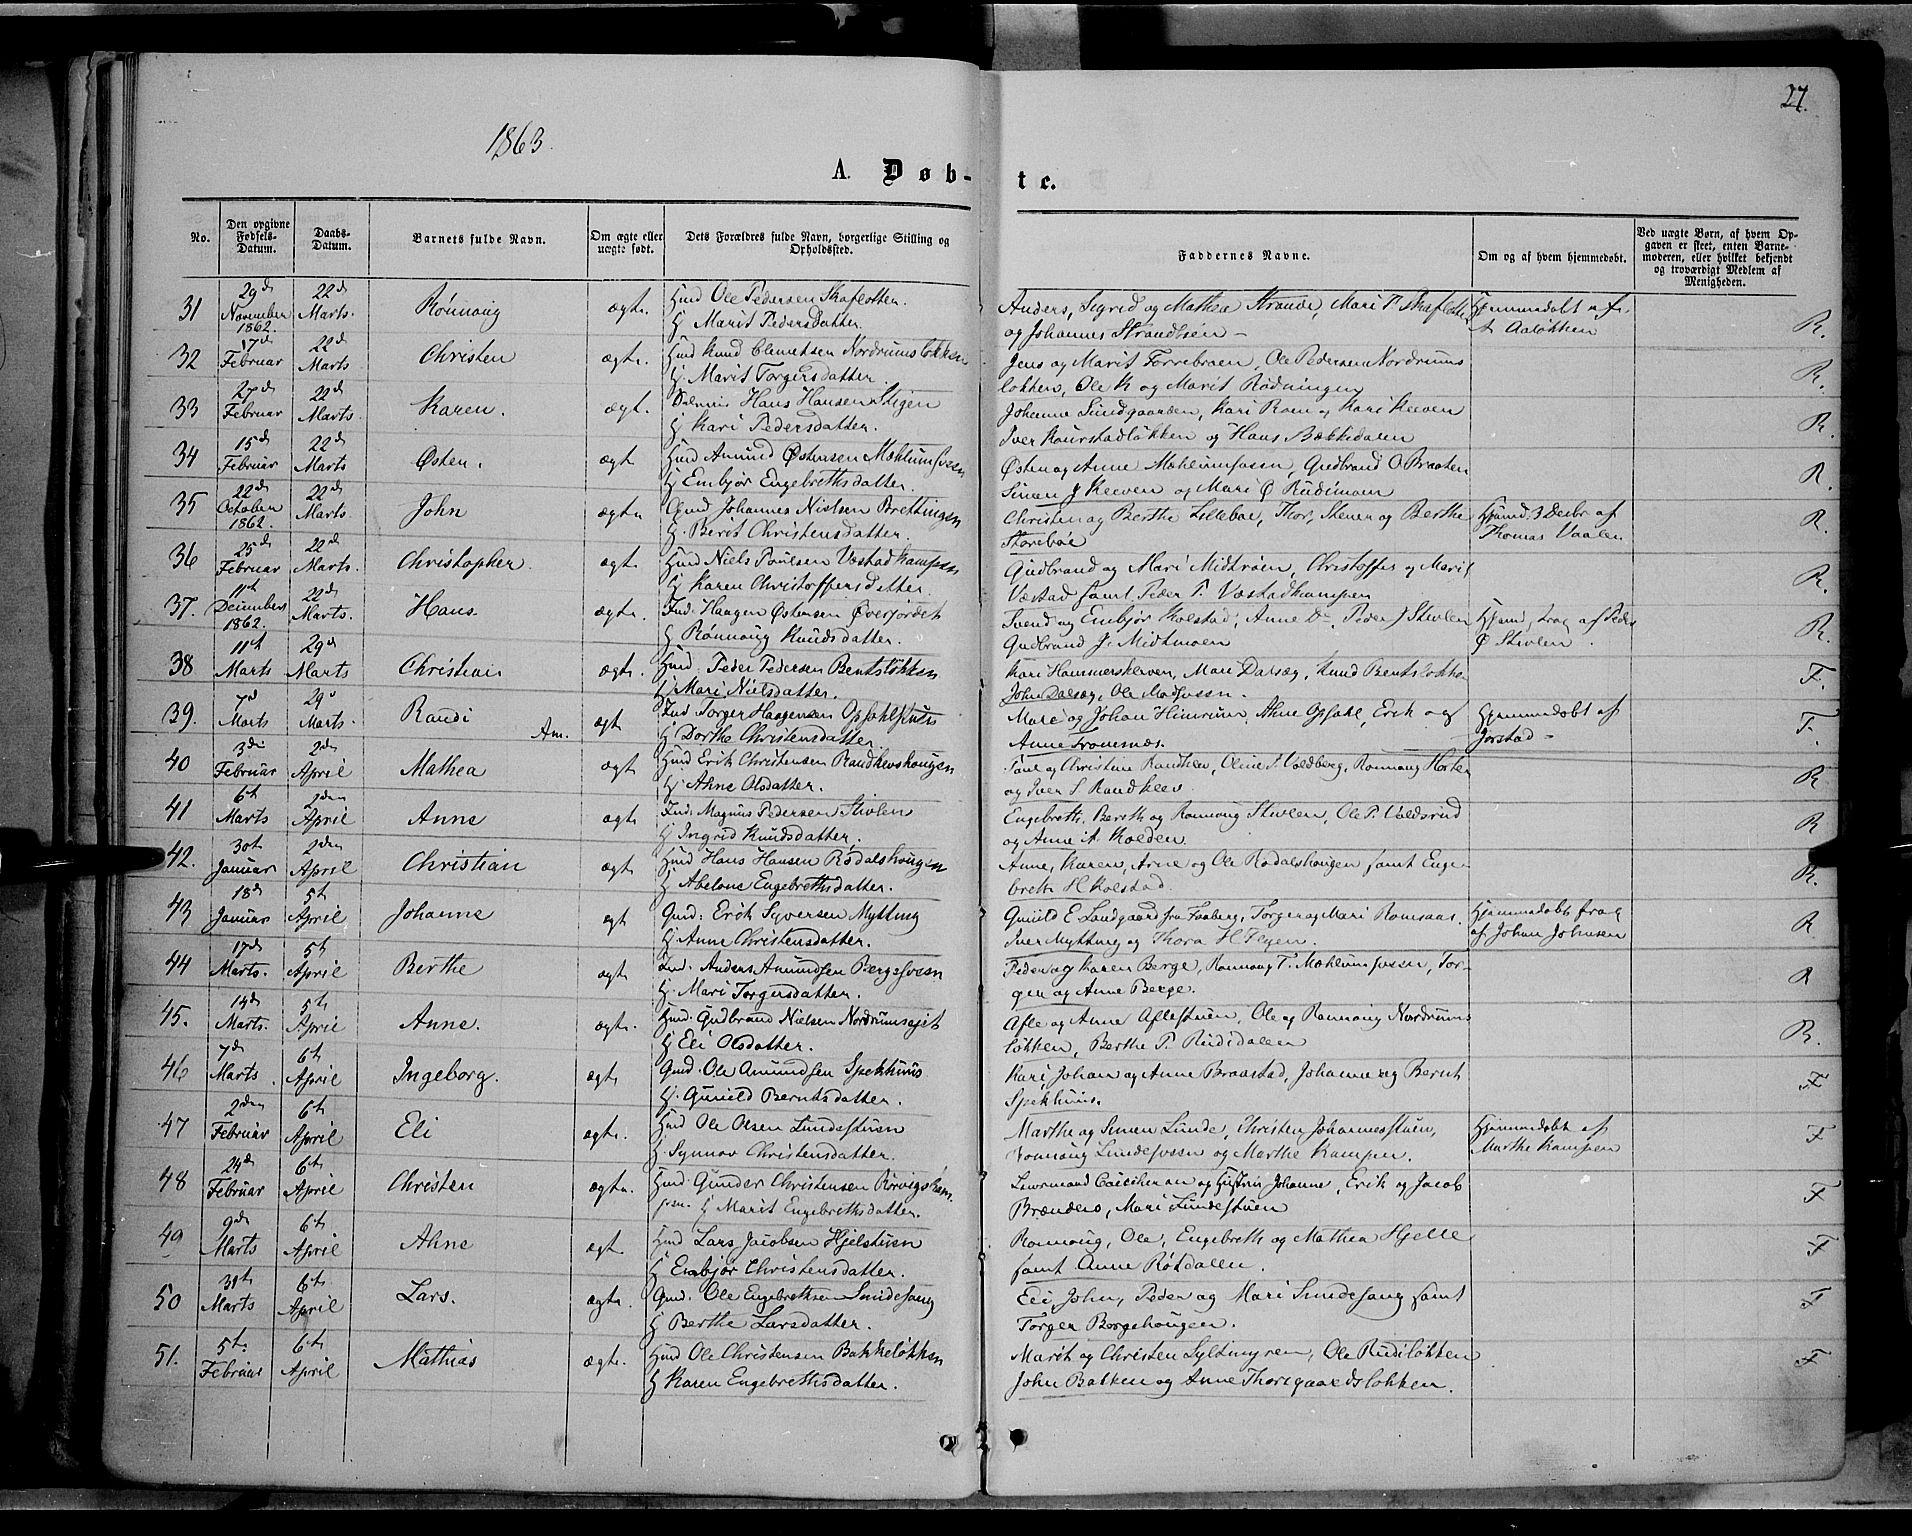 27.
1863.
A. Døb-
te.
No.
Den opgivne Fødsels-Datum.
Daabs-Datum.
Barnets fulde Navn.
Om ægte eller uægte født.
Dets Forældres fulde Navn, borgerlige Stilling og Opholdssted.
Faddernes Navne.
Om og af hvem hjemmedøbt.
Ved uægte Børn, af hvem Opgaven er skeet, enten Barnemoderen, eller hvilket bekjendt og troværdigt Medlem af Menigheden.
31 29de November 1862. 22de Marts. Rønnaug ægte. Huud Ole Pedersen Skaflotten.
H Marit Pedersdatter.
Anders, Sigrid og Mathea Strande, Mari P. Skaflotte
og Johannes Strandteien - Hjemmedøbt Aaløkken R.
32 17de Februar 22de Marts Christen ægte. Huud Knud Clemetsen Nordrumsløkken
H. Marit Torgersdatter.
Jens og Marit Forrebraen, Ole Pedersen Nordrums
løkken, Ole K og Marit Rødningen R.
33 27de Februar 22de Marts. Karen. ægt. Hans Hansen Stigen
H Kari Pedersdatter.
Johanne Sundgaarden, Kari Ram og Kari Kleven
Iver Kourstadløkken og Hans Bækkedalen R.
34 15de Februar 22de Marts Østen. ægt Huud Amund Østensen Mæhlumsveen
H Embjør Engebrethsdatter.
Østen og Anne Mæhlumsveen Gudbrand O. Braaten
Simen J Kleven og Mari Ø Rudimoen R.
35 22de October 1862. 22de Marts. John ægte Gmd Johannes Nielsen Brettingen
H. Berit Christensdatter.
Christen og Berthe Lillebøe, Thor, Stener og Berthe
Storebøe Hjemd. 3 Decbr af Thomas Vaalen R.
36 25de Februar 22de Marts. Christopher. ægt. Huud Niels Poulsen Væstadkampen
H Karen Christoffersdatter.
Gudbrand og Mari Midtmoen, Christoffer og Marit
Væstad samt Peder P. Væstadkampen R.
37. 11te December 1862. 22de Marts. Hans. ægte. Ind. Haagen Østensen Øverjordet
H Rønnaug Knudsdatter.
Svend og Embjør Kolstad, Anne Do, Peder J Stivlen
Gudbrand J. Midtmoen Hjemd. af Peder Ø Stivlen. R.
38 11te Marts 29de Marts Christian ægte. Huud. Peder Pedersen Bentsløkken
H Mari Nielsdatter.
Kari Hammerskleven, Mari Dalsæg, Knud Bentsløkk.
John Dalsæg, Ole F.
39. 7de Marts 29de Marts. Randi Am. ægt Ind Torger Haagensen Opsahlstuen
H Dorthe Christensdatter
Mari og Johan Heinrum, Ahne Opsahl, Erik og
Anne Tromsnæs. Hjemmedøbt af Jorstad - F.
40 3die Februar 2den April Mathea ægt Huud Erik Christensen Randklevhougen
H. Ahne Olsdatter.
Poul og Christine Randklev, Oline P. Voldberg, Rønnaug Horten
og Iver S Randklev. R
41 6te Marts 2den April Anne ægt Ind. Magnus Pedersen Stivlen
H Ingrid Knudsdatter.
Engebreth, Bereth og Rønnaug Stivlen, Ole P. Voldsrud
og Anne A Kolden. R
42. 30te Januar 2den April Christian ægt Huud Hans Hansen Rødalshougen
H Abelone Engebrethsdatter.
Anne, Karen, Arne og Ole Rødalshougen samt Enge-
breth H Kolstad. R.
43 18de Januar 5te April Johanne ægt Gmd: Erik Syversen Mytting
H. Anne Christensdatter.
Gunild E Landgaard fra Faaberg, Torger og Mari Romsaas.
Iver Mytting og Thora H Flyen. Hjemmedøbt af Johan Johnsen R
44 17de Marts. 5te April Berthe ægt Ind. Anders Amundsen Bergesveen
H. Mari Torgersdatter.
Peder og Karen Berge, Rønnaug T. Mæhlumsveen, Tor-
ger og Anne Berge. R
45. 14de Marts. 5te April Anne. ægte. Huud. Gudbrand Nielsen Nordrumsejet
H Eli Olsdatter.
Afle og Anne Aflestuen, Ole og Rønnaug Nordrums
løkken, Berthe P. Rudidalen R.
46 7de Marts. 6te April Ingeborg. ægt. Gmd. Ole Amundsen Spekhuus
H. Gunild Berntsdatter.
Kari, Johan og Anne Braastad, Johanne og Bernt
Spekhuus. F
47 2den Februar 6te April Eli ægte. Huud Ole Olsen Lundestuen
H. Synnøv Christensdatter.
Marthe og Simen Lunde, Christen Johannesstuen,
Rønnaug Lundesveen og Marthe Kampen. Hjemmedøbt af Marthe Kampen F
48 24de Februar 6te April Christen ægte. Huud. Gunder Christensen Rørvigskam
pen. H Marit Engebrethsdatter.
og Hustru Johanne, Erik og Jacob
Brændeie, Mari Lundestuen F
49 9de Marts 6te April Ahne ægt Huud Lars Jacobsen Hjelstuen
H Embjør Christensdatter.
Rønnaug, Ole, Engebreth og Mathea Hjelle
samt Anne Røtdalen. F
50 31te Marts 6te April Lars. ægte. Gmd. Ole Engebretsen Sundesang
H Berthe Larsdatter.
Eli, John, Peder og Mari Sundesang samt
Torger Borgehougen. F
51. 5te Februar 6te April Mathias ægte. Huud Ole Christensen Bakkeløkken
H Karen Engebrethsdatter.
Marit og Christen Syltmyren, Ole Rudiløkken
John Bakken og Anne Thorsgaardsløkken. F